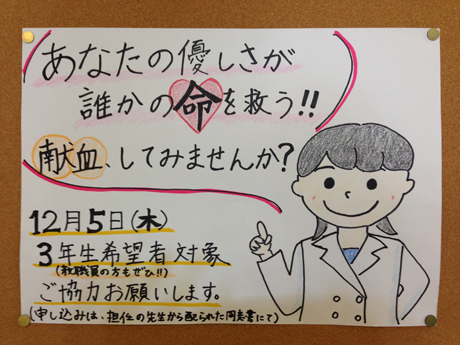 あなたの優しさが
誰かの命を救う!!
献血、してみませんか?
12月5日(木)
3年生希望者対象
(教職員の方もぜひ!!)
ご協力お願いします。
(申し込みは、担任の先生から配られた同意書にて)